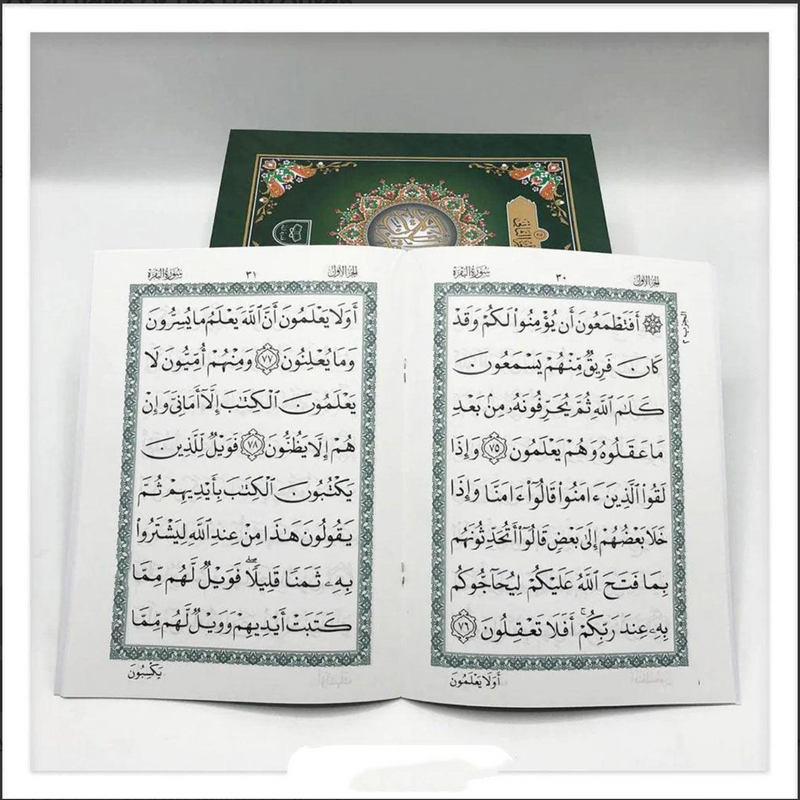 الجزء الأول
٣٠
سورة البقرة
۞ أَفَتَطْمَعُونَ أَن يُؤْمِنُوا۟ لَكُمْ وَقَدْ
كَانَ فَرِيقٌ مِّنْهُمْ يَسْمَعُونَ
كَلَٰمَ ٱللَّهِ ثُمَّ يُحَرِّفُونَهُۥ مِنۢ بَعْدِ
مَا عَقَلُوهُ وَهُمْ يَعْلَمُونَ ٧٥ وَإِذَا
لَقُوا۟ ٱلَّذِينَ ءَامَنُوا۟ قَالُوٓا۟ ءَامَنَّا وَإِذَا
خَلَا بَعْضُهُمْ إِلَىٰ بَعْضٍ قَالُوٓا۟ أَتُحَدِّثُونَهُم
بِمَا فَتَحَ ٱللَّهُ عَلَيْكُمْ لِيُحَآجُّوكُم
بِهِۦ عِندَ رَبِّكُمْ ۚ أَفَلَا تَعْقِلُونَ ٧٦
أَوَلَا يَعْلَمُونَ
الجزء الأول
٣١
سورة البقرة
أَوَلَا يَعْلَمُونَ أَنَّ ٱللَّهَ يَعْلَمُ مَا يُسِرُّونَ
وَمَا يُعْلِنُونَ ٧٧ وَمِنْهُمْ أُمِّيُّونَ لَا
يَعْلَمُونَ ٱلْكِتَٰبَ إِلَّآ أَمَانِىَّ وَإِنْ
هُمْ إِلَّا يَظُنُّونَ ٧٨ فَوَيْلٌ لِّلَّذِينَ
يَكْتُبُونَ ٱلْكِتَٰبَ بِأَيْدِيهِمْ ثُمَّ
يَقُولُونَ هَٰذَا مِنْ عِندِ ٱللَّهِ لِيَشْتَرُوا۟
بِهِۦ ثَمَنًا قَلِيلًا ۖ فَوَيْلٌ لَّهُم مِّمَّا
كَتَبَتْ أَيْدِيهِمْ وَوَيْلٌ لَّهُم مِّمَّا
يَكْسِبُونَ